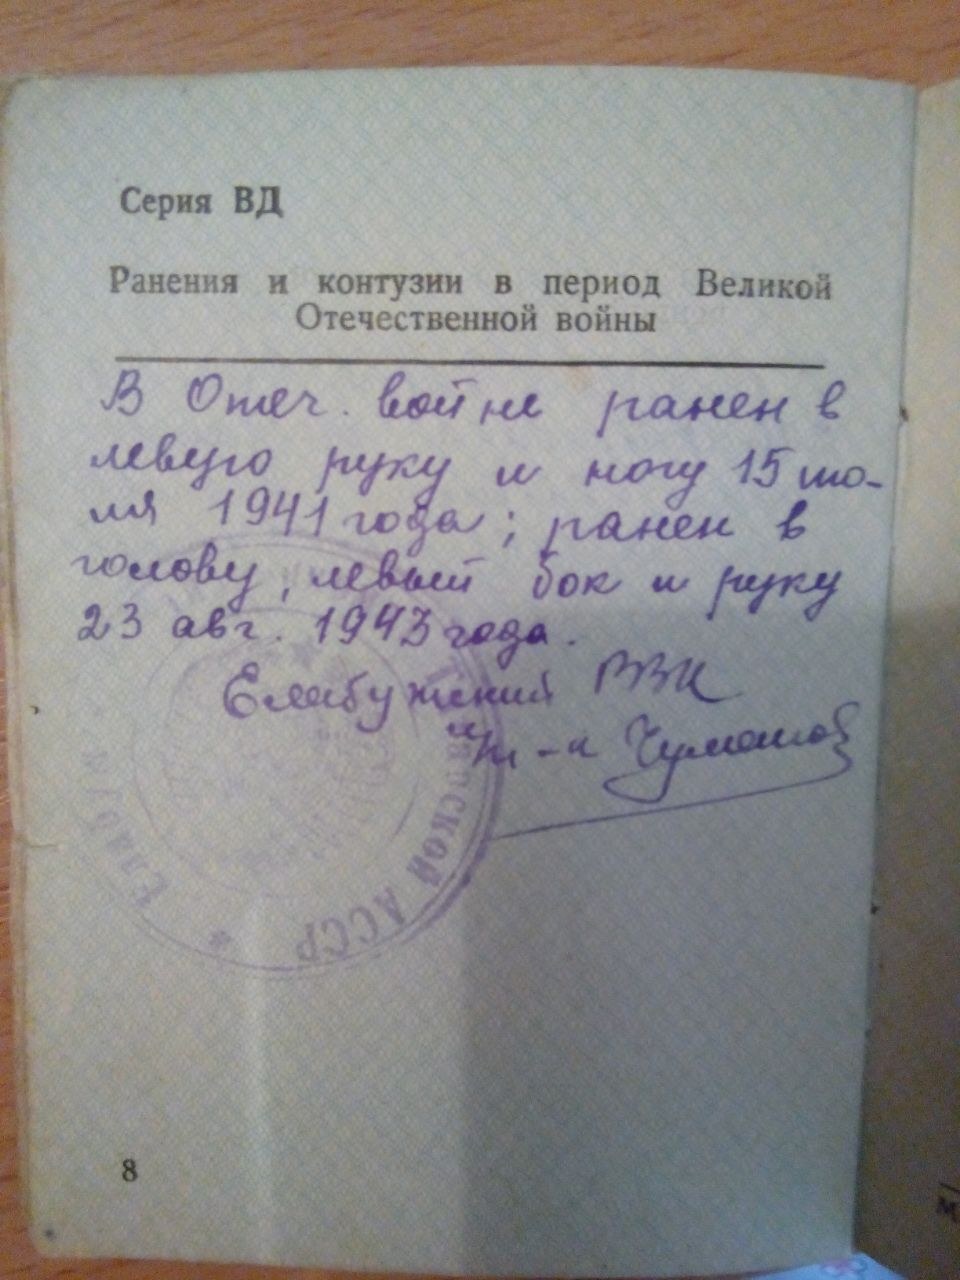 Серия ВД
Ранения и контузии в период Великой
Отечественной войны
В Отеч. войне ранен в
левую руку и ногу 15 ию-
ля 1941 года; ранен в
голову, левый бок и руку
23 авг. 1943 года.
Елабужский РВК
АССР
8